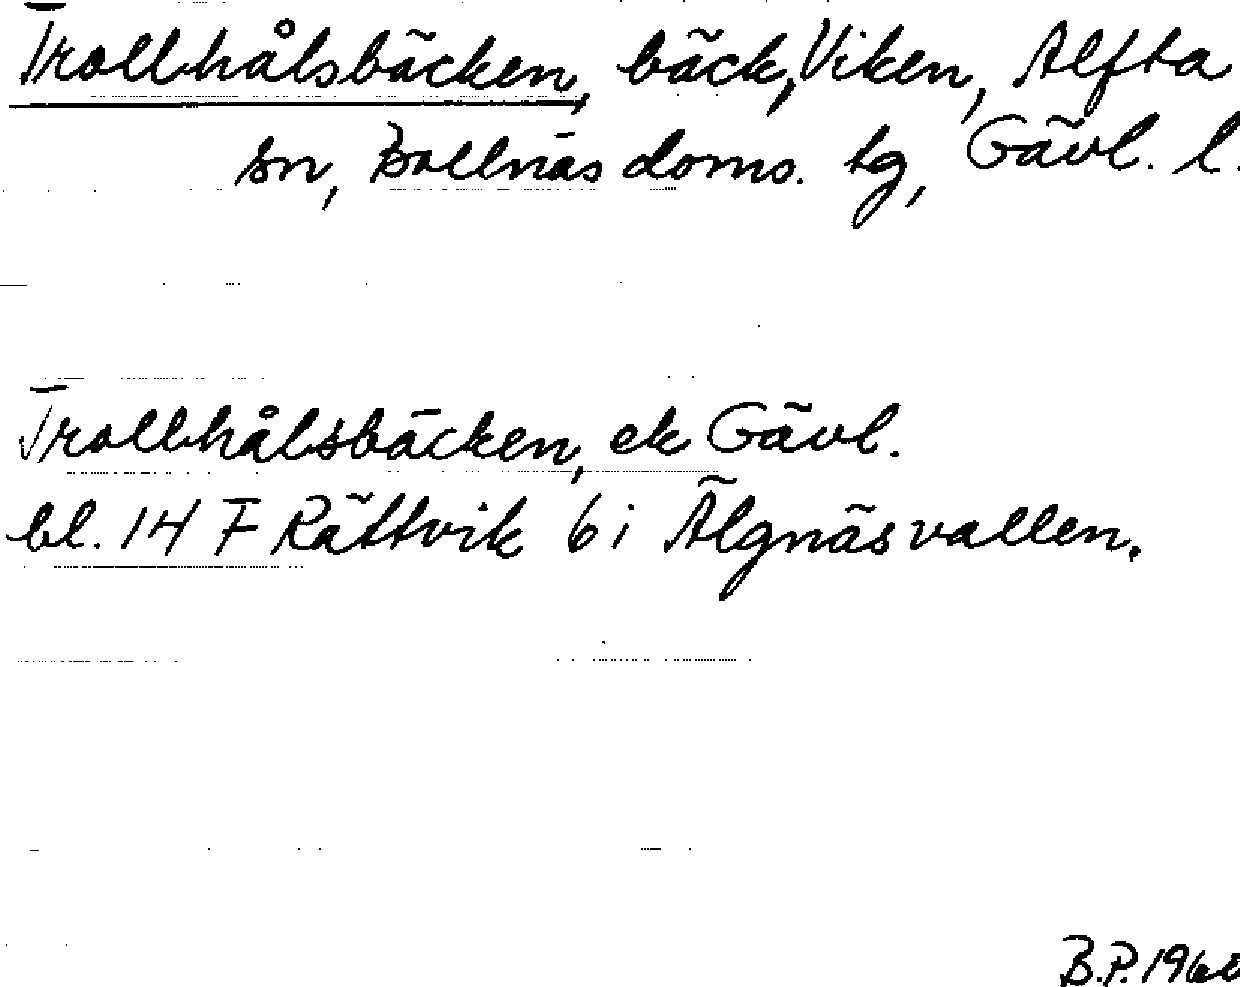 Trollhålsbäcken, bäck, Viken, Alfta
sn, Bollnäs doms. tg, Gävl. l.
Trollhålsbäcken, ek Gävl.
bl. 14 F Rättvik 6 i Älgnäsvallen.
B.P. 1960